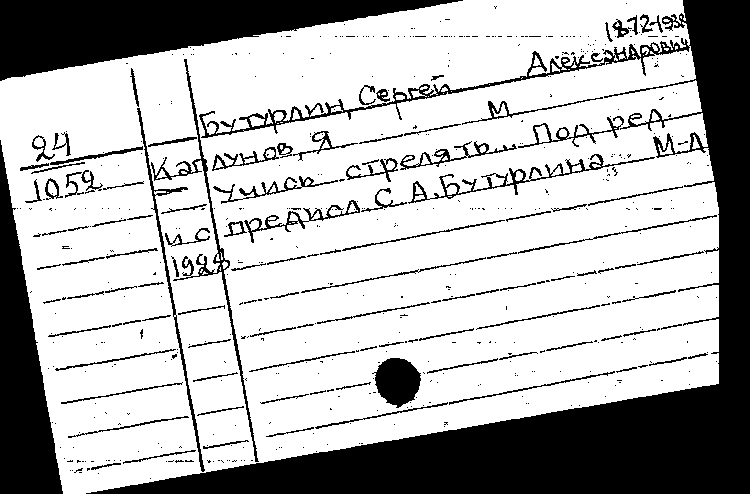 1872-1938
Бутурлин, Сергей Александрович
24
1052
Каплунов, Я М
Учись стрелять... Под ред.
и с предисл. С А. Бутурлина. М-Л
1928